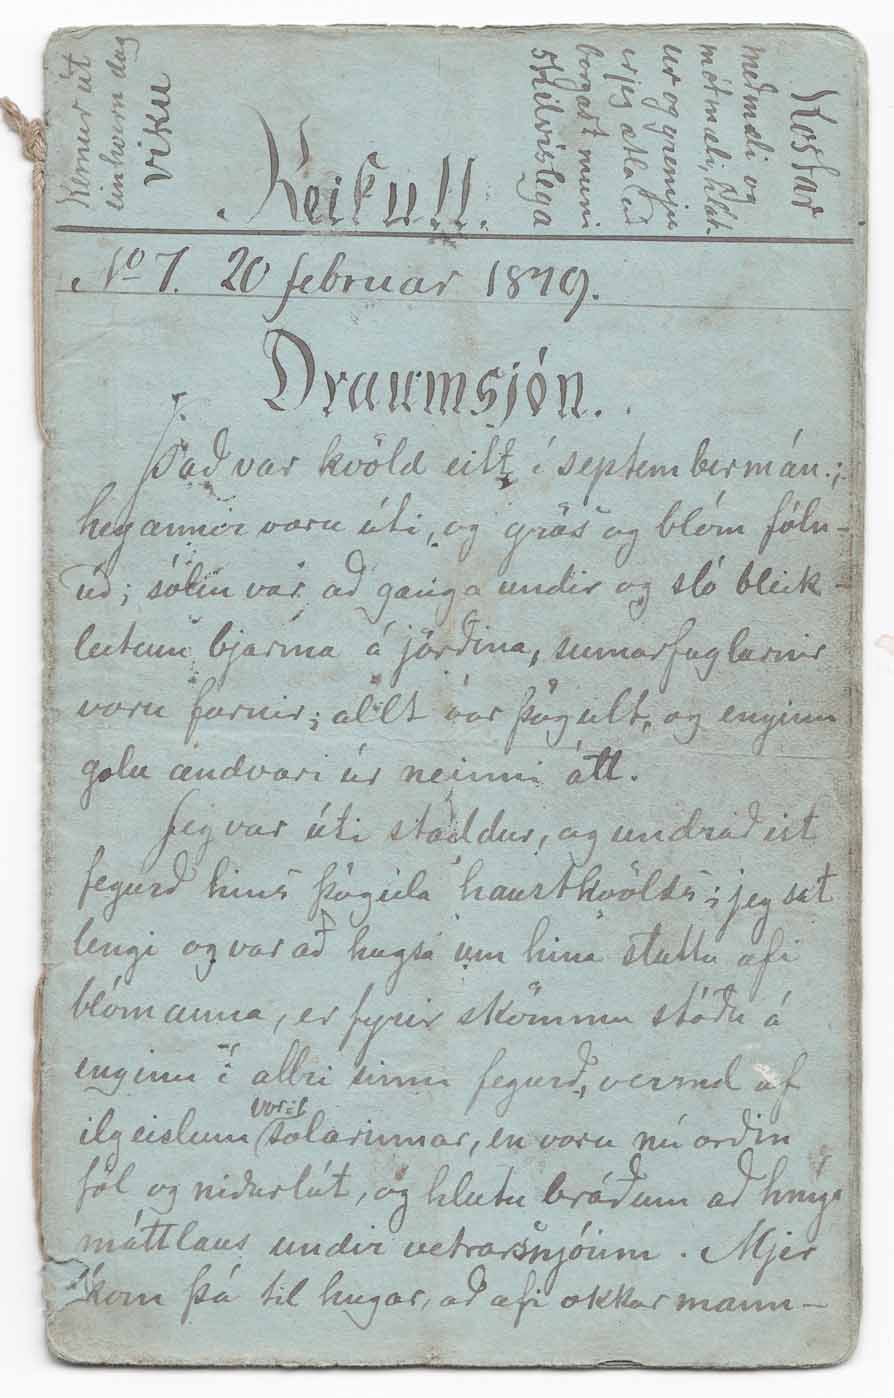 Kemur út
einhvern dag
viku
Reikull.
Kostar
meðmæli og
mótmæli, hlát-
ur og gremju
er jeg ætla að
borgað muni
skilvíslega
No 1. 20 februar 1879.
Draumsjón.
Það var kvöld eitt í septembermán.;
heyannir voru úti, og grös og blóm föln-
uð; sólin var að ganga undir og sló bleik-
leitum bjarma á jörðina, sumarfuglarnir
voru farnir; allt var þögult, og enginn
golu andvari úr neinni átt.
Jeg var úti staddur, og undraðist
fegurð hins þögula haustkvölds; jeg sat
lengi og var að hugsa um hina stuttu æfi
blómanna, er fyrir skömmu stóðu á
enginu í allri sinni fegurð, vermd af
ylgeislum vor=sólarinnar, en voru nú orðin
föl og niðurlút, og hlutu bráðum að hníga
máttlaus undir vetrarsnjóinn. Mjer
kom þá til hugar, að æfi okkar mann-